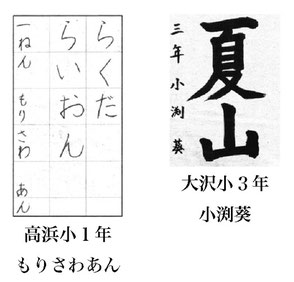 らくだ
らいおん
一ねん もりさわ あん
高浜小1年
もりさわあん
夏山
三年 小渕葵
大沢小3年
小渕葵